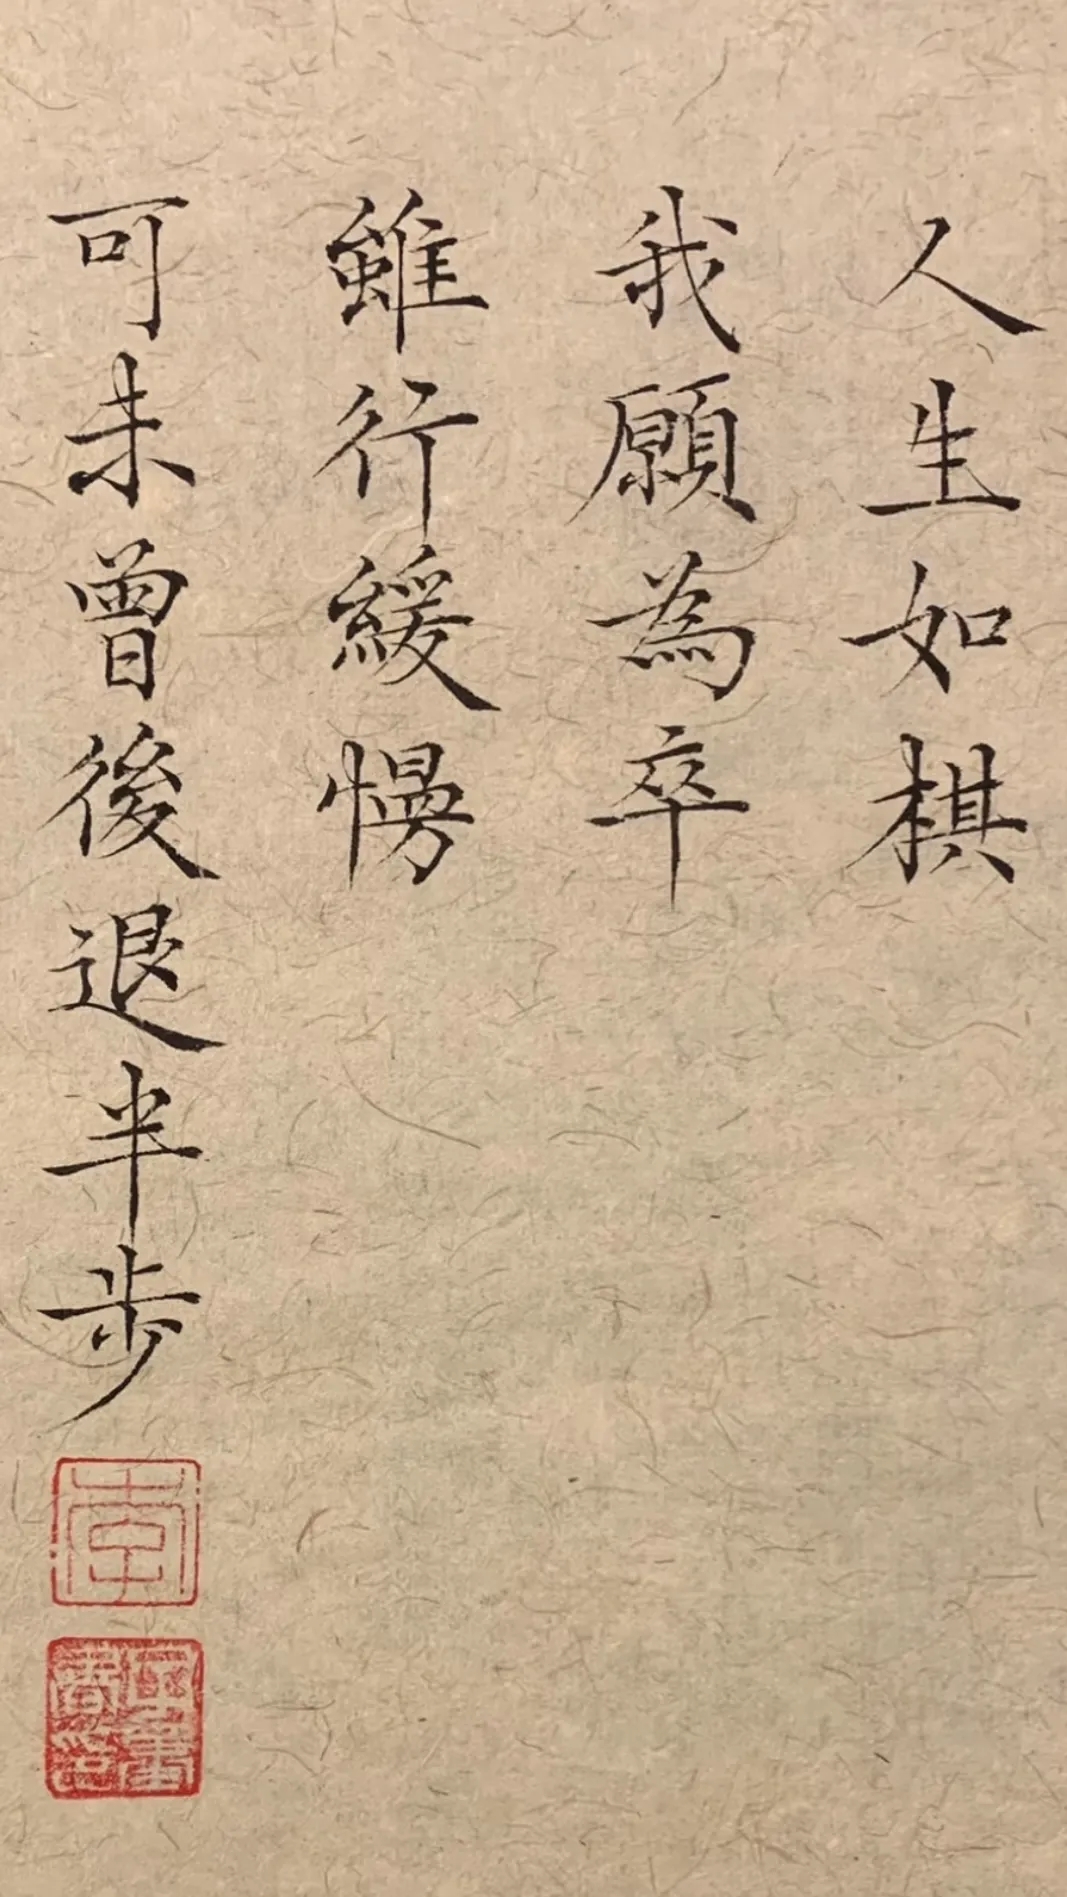 人生如棋
我願為卒
雖行緩慢
可未曾後退半步